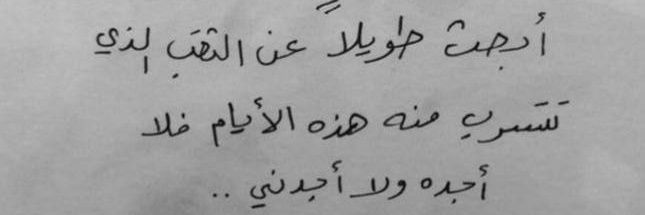 أبحث طويلاً عن الثقب الذي
تتسرب منه هذه الأيام فلا
أجده ولا أجدني ..